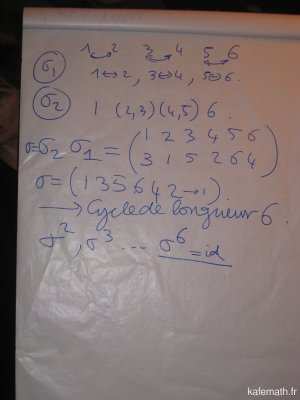 1 2 3 4 5 6
σ₁ 1↔2, 3↔4, 5↔6.
σ₂ 1 (2,3)(4,5) 6.
σ=σ₂ σ₁ = ( 1 2 3 4 5 6
3 1 5 2 6 4 )
σ = (1 3 5 6 4 2 → 1)
→ Cycle de longueur 6.
σ², σ³ ... σ⁶ = id
kafemath.fr